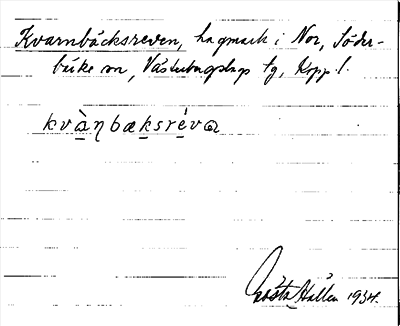 Kvarnbäcksreven, hagmark i Nor, Söder-
bärke sn, Västerbergslags tg, Kopp. l.
kvàɳbæksrévɷ
Gösta Hallén 1934.